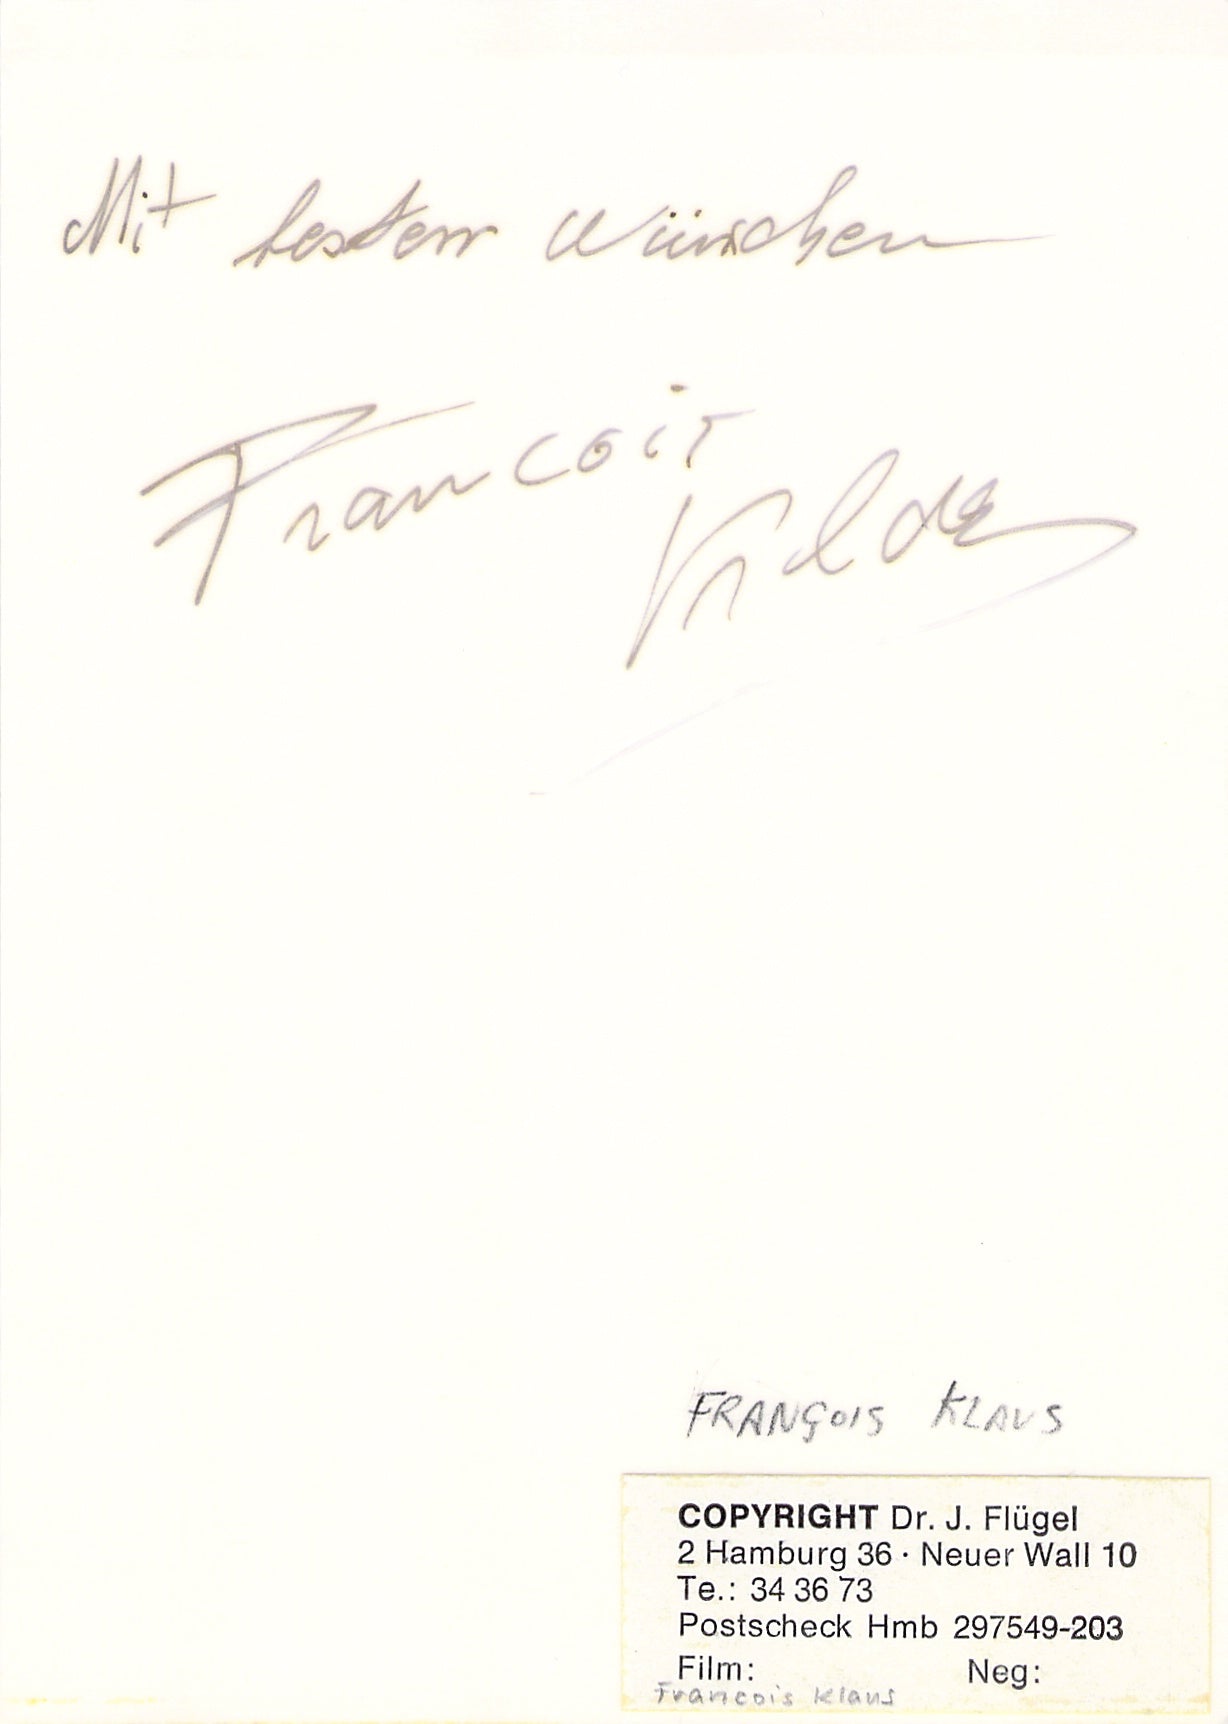 Mit besten Wünschen
Francois
Klaus
FRANÇOIS KLAUS
COPYRIGHT Dr. J. Flügel
2 Hamburg 36 · Neuer Wall 10
Te.: 34 36 73
Postscheck Hmb 297549-203
Film: Neg:
Francois Klaus